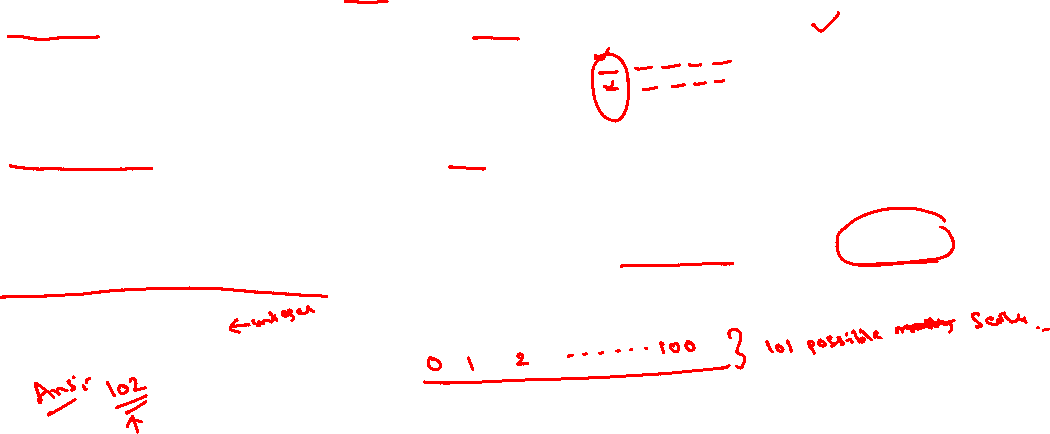 ←integer
0 1 2 ........100 } 101 possible scores..
Ans: 102